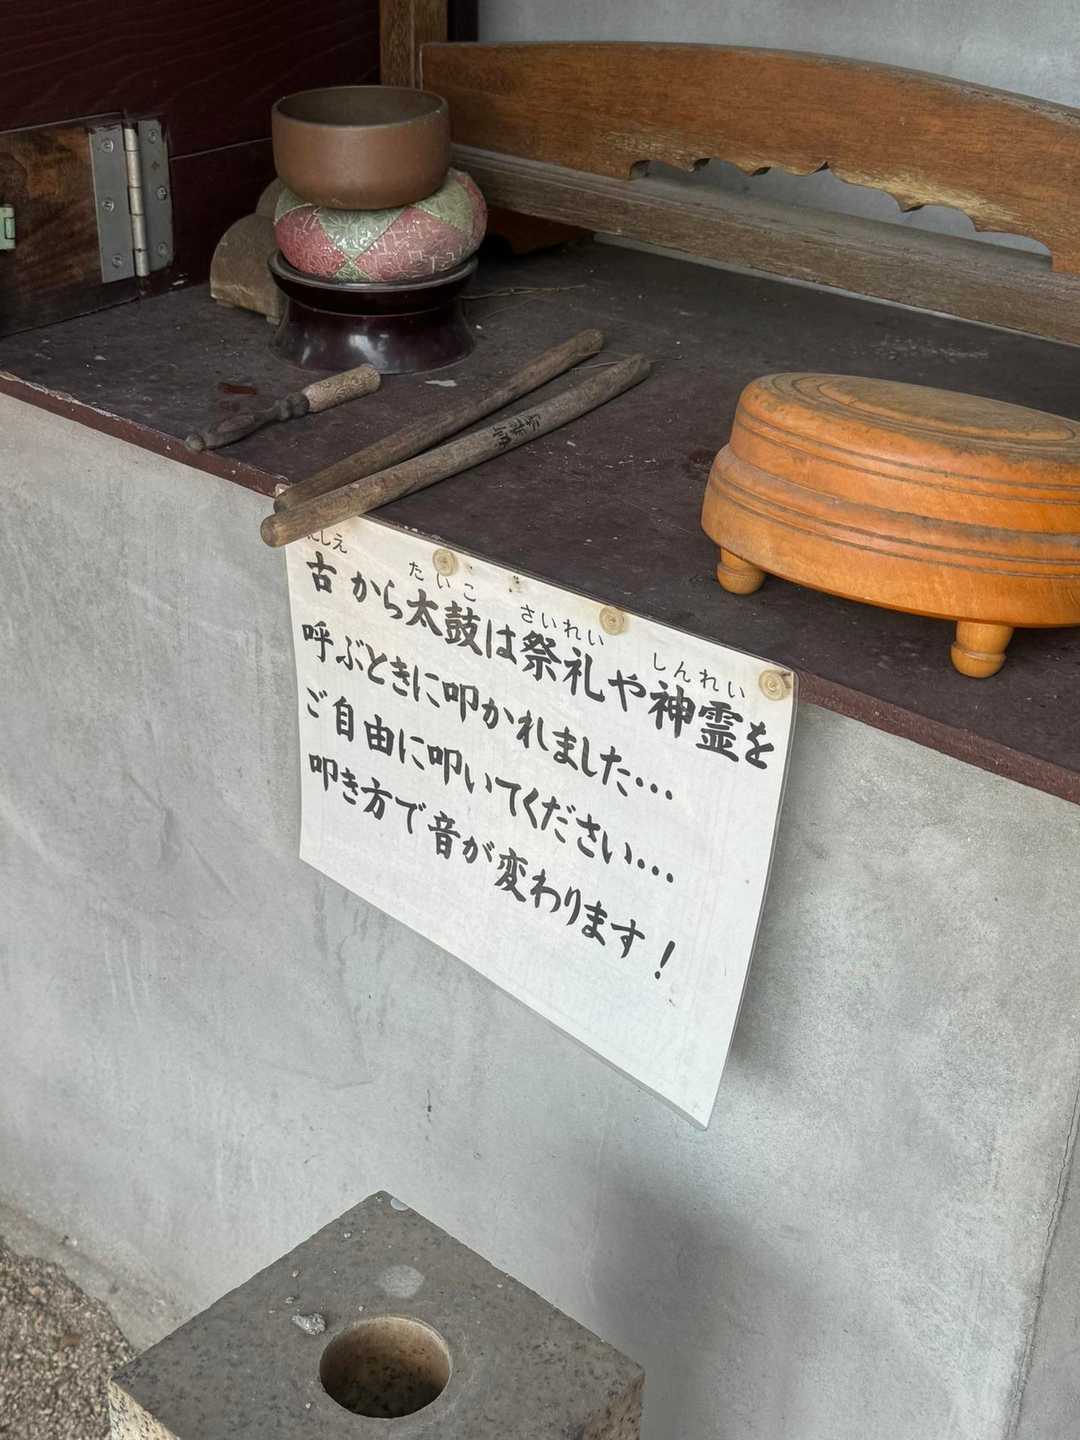 にしえ
古から太鼓は祭礼や神霊を
たいこ さいれい しんれい
呼ぶときに叩かれました…
ご自由に叩いてください…
叩き方で音が変わります！